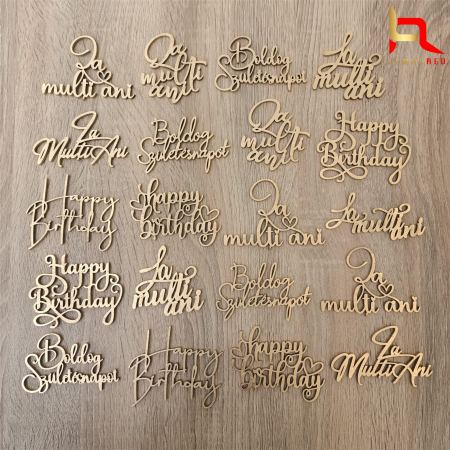 La
multi ani
La
multi
ani
Boldog
Születésnapot
La
multi
ani
La
Multi Ani
Boldog
Születésnapot
La
multi
ani
Happy
Birthday
Happy
Birthday
happy
birthday
La
multi ani
La
multi
ani
Happy
Birthday
La
multi
ani
Boldog
Születésnapot
La
multi ani
Boldog
Születésnapot
Happy
Birthday
happy
birthday
La
Multi Ani